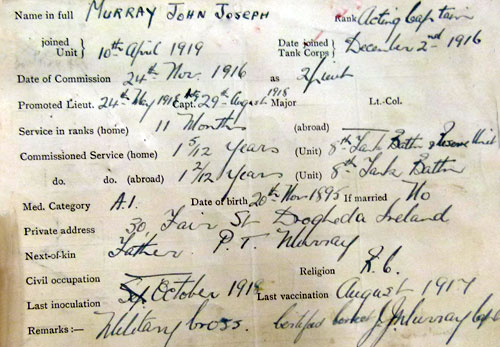 Name in full MURRAY JOHN JOSEPH Rank Acting Captain
joined Unit } 10th April 1919 Date joined Tank Corps } December 2nd 1916
Date of Commission 24th Nov. 1916 as 2/Lieut
Promoted Lieut. 24th May 1918 Capt. 29th August 1918 Major Lt.-Col.
Service in ranks (home) 11 Months (abroad)
Commissioned Service (home) 1 5/12 years (Unit) 8th Tank Battn & Reserve Unit
do. do. (abroad) 1 2/12 years (Unit) 8th Tank Battn
Med. Category A.1. Date of birth 20th Nov 1895 If married No
Private address 30, Fair St Drogheda Ireland
Next-of-kin Father. P. T. Murray
Civil occupation Religion R.C.
Last inoculation October 1918 Last vaccination August 1917
Remarks :— Military Cross. Certified correct J J Murray Capt